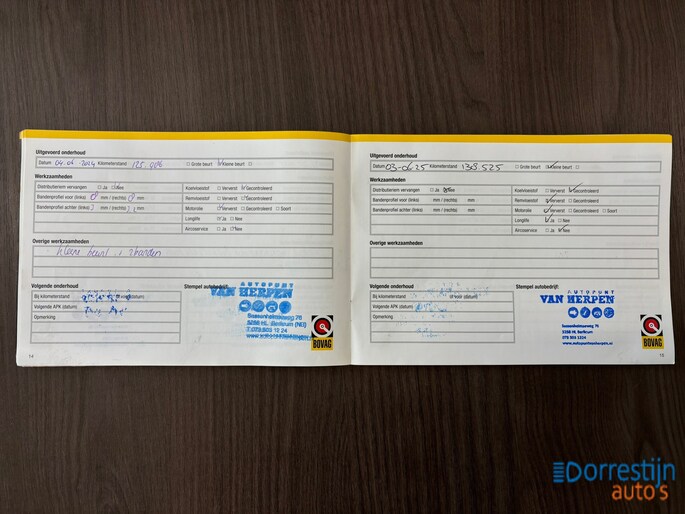 Uitgevoerd onderhoud
Datum 04.06.2024 Kilometerstand 125.406 Grote beurt Kleine beurt
Werkzaamheden
Distributieriem vervangen Ja Nee Koelvloeistof Ververst Gecontroleerd
Bandenprofiel voor (links) mm / (rechts) mm Remvloeistof Ververst Gecontroleerd
Bandenprofiel achter (links) mm / (rechts) mm Motorolie Ververst Gecontroleerd Soort
Longlife Ja Nee
Aircoservice Ja Nee
Overige werkzaamheden
Kleine beurt
Volgende onderhoud Stempel autobedrijf:
Bij kilometerstand of voor (datum)
Volgende APK (datum)
Opmerking
AUTOPUNT
VAN HERPEN
5258 HL Berlicum (NB)
T. 073 503 12 24
BOVAG
14
Uitgevoerd onderhoud
Datum 03-06-25 Kilometerstand 138.525 Grote beurt Kleine beurt
Werkzaamheden
Distributieriem vervangen Ja Nee Koelvloeistof Ververst Gecontroleerd
Bandenprofiel voor (links) mm / (rechts) mm Remvloeistof Ververst Gecontroleerd
Bandenprofiel achter (links) mm / (rechts) mm Motorolie Ververst Gecontroleerd Soort
Longlife Ja Nee
Aircoservice Ja Nee
Overige werkzaamheden
Volgende onderhoud Stempel autobedrijf:
Bij kilometerstand of voor (datum)
Volgende APK (datum)
Opmerking
AUTOPUNT
VAN HERPEN
BOVAG
15
Dorrestijn
auto's